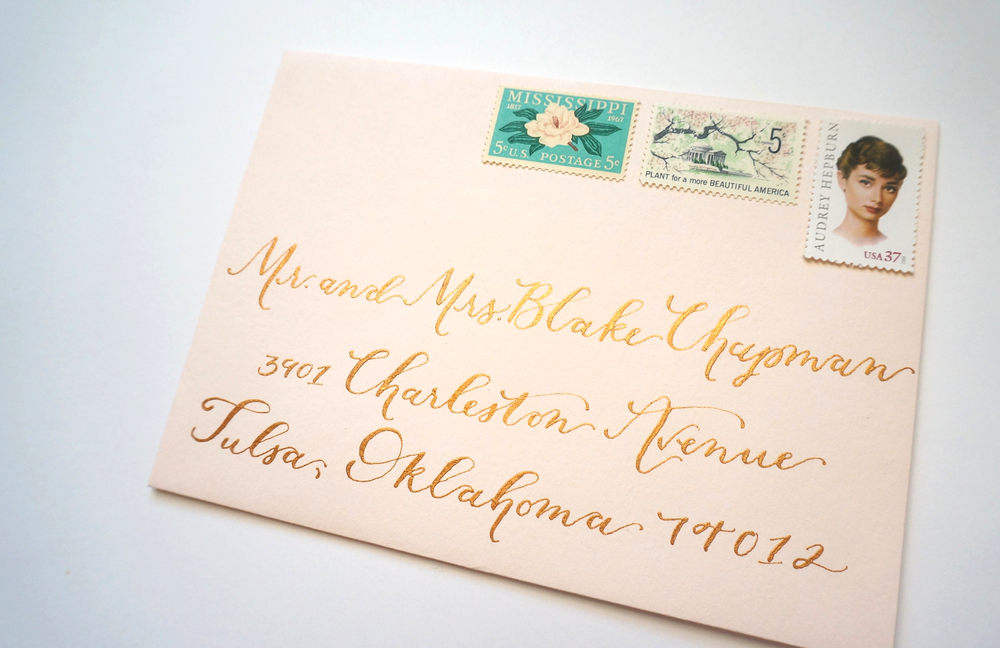 MISSISSIPPI
1817 1967
5c U.S. POSTAGE 5c
5c
PLANT for a more BEAUTIFUL AMERICA
AUDREY HEPBURN
USA 37
Mr. and Mrs. Blake Chapman
3901 Charleston Avenue
Tulsa, Oklahoma 74012